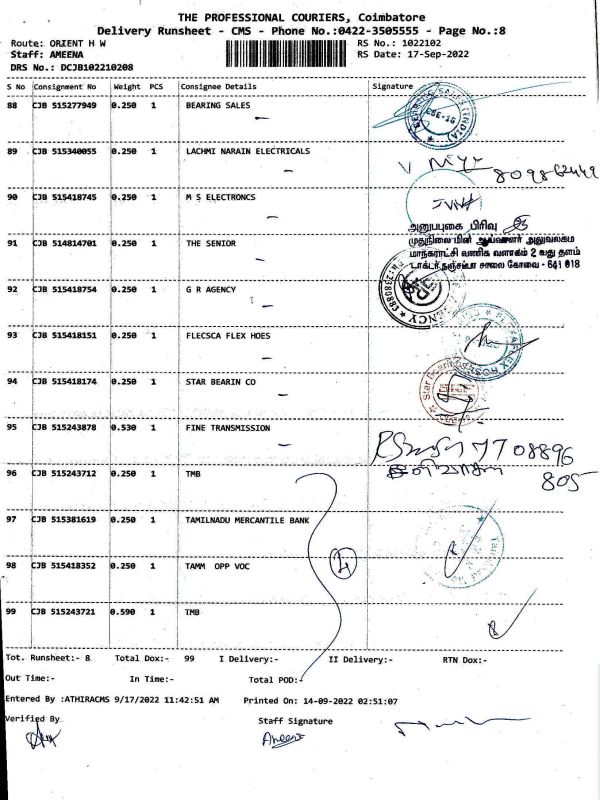 THE PROFESSIONAL COURIERS, Coimbatore
Delivery Runsheet - CMS - Phone No.:0422-3505555 - Page No.:8
Route: ORIENT H W RS No.: 1022102
Staff: AMEENA RS Date: 17-Sep-2022
DRS No.: DCJB102210208
S No Consignment No Weight PCS Consignee Details Signature
88 CJB 515277949 0.250 1 BEARING SALES
89 CJB 515340055 0.250 1 LACHMI NARAIN ELECTRICALS
90 CJB 515418745 0.250 1 M S ELECTRONCS
அனுபபுகை பிரிவு
முதுநிலை மின் ஆய்வாளர் அலுவலகம
91 CJB 514814701 0.250 1 THE SENIOR
மாநகராட்சி வணிக வளாகம் 2 வது தளம்
டாக்டர் நஞ்சப்பா சாலை கோவை - 641 018
92 CJB 515418754 0.250 1 G R AGENCY
93 CJB 515418151 0.250 1 FLECSCA FLEX HOES
94 CJB 515418174 0.250 1 STAR BEARIN CO
95 CJB 515243878 0.530 1 FINE TRANSMISSION
77 08896
805
96 CJB 515243712 0.250 1 TMB
97 CJB 515381619 0.250 1 TAMILNADU MERCANTILE BANK
98 CJB 515418352 0.250 1 TAMM OPP VOC
4
99 CJB 515243721 0.590 1 TMB
Tot. Runsheet:- 8 Total Dox:- 99 I Delivery:- II Delivery:- RTN Dox:-
Out Time:- In Time:- Total POD:-
Entered By :ATHIRACMS 9/17/2022 11:42:51 AM Printed On: 14-09-2022 02:51:07
Verified By Staff Signature
Ameena